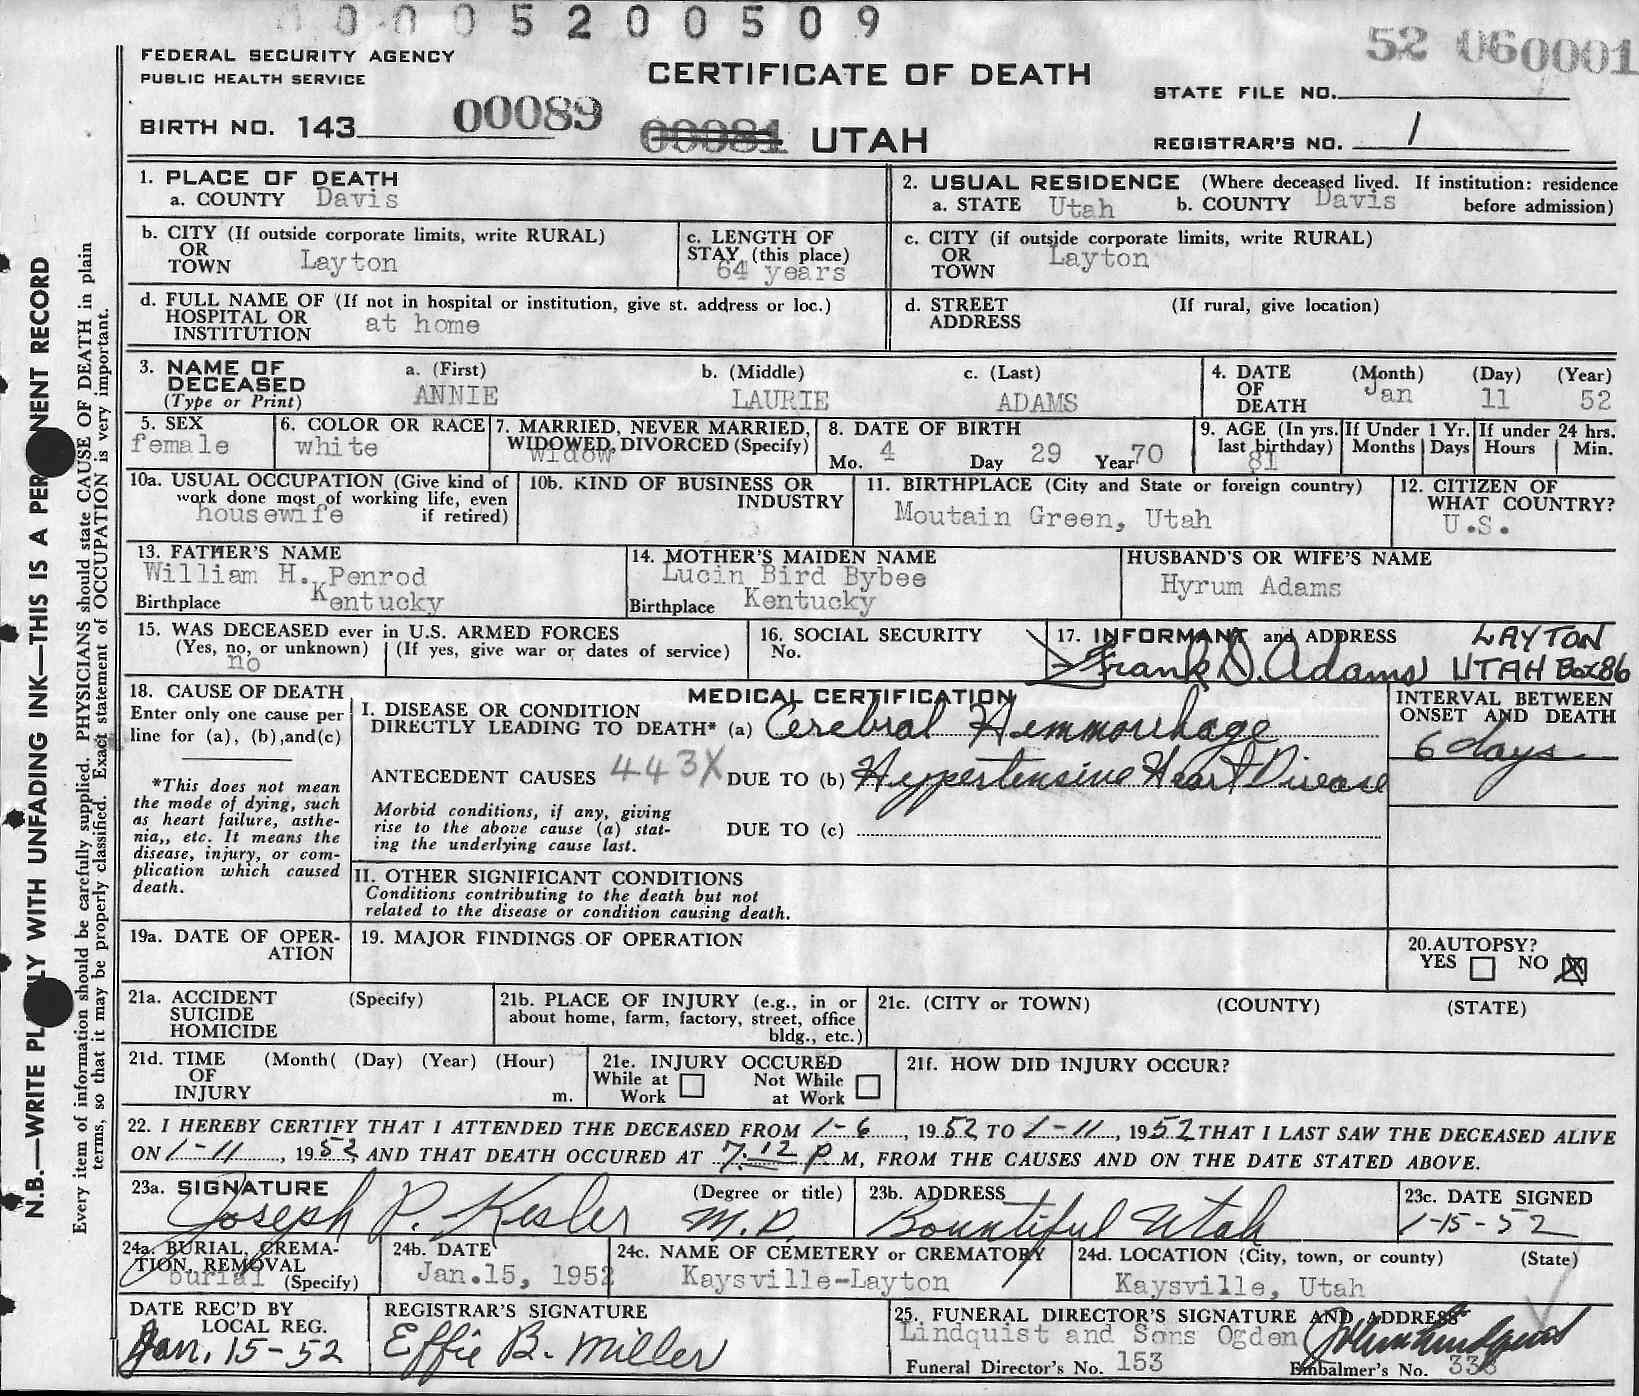 0 0 0 5 2 0 0 5 0 9
52 060001
FEDERAL SECURITY AGENCY
PUBLIC HEALTH SERVICE
CERTIFICATE OF DEATH
STATE FILE NO.
BIRTH NO. 143 00089 00081 UTAH
REGISTRAR'S NO. 1
1. PLACE OF DEATH
a. COUNTY Davis
2. USUAL RESIDENCE (Where deceased lived. If institution: residence before admission)
a. STATE Utah b. COUNTY Davis
b. CITY (If outside corporate limits, write RURAL)
OR
TOWN Layton
c. LENGTH OF
STAY (this place)
64 years
c. CITY (if outside corporate limits, write RURAL)
OR
TOWN Layton
d. FULL NAME OF (If not in hospital or institution, give st. address or loc.)
HOSPITAL OR
INSTITUTION at home
d. STREET (If rural, give location)
ADDRESS
3. NAME OF
DECEASED
(Type or Print)
a. (First)
ANNIE
b. (Middle)
LAURIE
c. (Last)
ADAMS
4. DATE
OF
DEATH
(Month) (Day) (Year)
Jan 11 52
5. SEX
female
6. COLOR OR RACE
white
7. MARRIED, NEVER MARRIED,
WIDOWED, DIVORCED (Specify)
widow
8. DATE OF BIRTH
Mo. 4 Day 29 Year 70
9. AGE (In yrs.
last birthday)
81
If Under 1 Yr.
Months Days
If under 24 hrs.
Hours Min.
10a. USUAL OCCUPATION (Give kind of
work done most of working life, even
housewife if retired)
10b. KIND OF BUSINESS OR
INDUSTRY
11. BIRTHPLACE (City and State or foreign country)
Moutain Green, Utah
12. CITIZEN OF
WHAT COUNTRY?
U.S.
13. FATHER'S NAME
William H. Penrod
Birthplace Kentucky
14. MOTHER'S MAIDEN NAME
Lucin Bird Bybee
Birthplace Kentucky
HUSBAND'S OR WIFE'S NAME
Hyrum Adams
15. WAS DECEASED ever in U.S. ARMED FORCES
(Yes, no, or unknown) (If yes, give war or dates of service)
no
16. SOCIAL SECURITY
No.
17. INFORMANT and ADDRESS LAYTON
Frank D. Adams UTAH Box 86
18. CAUSE OF DEATH
Enter only one cause per
line for (a), (b), and (c)
*This does not mean
the mode of dying, such
as heart failure, asthe-
nia,, etc. It means the
disease, injury, or com-
plication which caused
death.
MEDICAL CERTIFICATION
I. DISEASE OR CONDITION
DIRECTLY LEADING TO DEATH* (a) Cerebral Hemmorrhage
ANTECEDENT CAUSES 443X DUE TO (b) Hyppertensive Heart Disease
Morbid conditions, if any, giving
rise to the above cause (a) stat-
ing the underlying cause last.
DUE TO (c)
INTERVAL BETWEEN
ONSET AND DEATH
6 days
II. OTHER SIGNIFICANT CONDITIONS
Conditions contributing to the death but not
related to the disease or condition causing death.
19a. DATE OF OPER-
ATION
19. MAJOR FINDINGS OF OPERATION
20. AUTOPSY?
YES NO X
21a. ACCIDENT (Specify)
SUICIDE
HOMICIDE
21b. PLACE OF INJURY (e.g., in or
about home, farm, factory, street, office
bldg., etc.)
21c. (CITY or TOWN) (COUNTY) (STATE)
21d. TIME (Month( (Day) (Year) (Hour)
OF
INJURY m.
21e. INJURY OCCURED
While at Work
Not While at Work
21f. HOW DID INJURY OCCUR?
22. I HEREBY CERTIFY THAT I ATTENDED THE DECEASED FROM 1-6, 1952 TO 1-11, 1952 THAT I LAST SAW THE DECEASED ALIVE
ON 1-11, 1952, AND THAT DEATH OCCURED AT 7:12 P M, FROM THE CAUSES AND ON THE DATE STATED ABOVE.
23a. SIGNATURE (Degree or title)
Joseph P. Kesler M.D.
23b. ADDRESS
Bountiful Utah
23c. DATE SIGNED
1-15-52
24a. BURIAL, CREMA-
TION, REMOVAL
burial (Specify)
24b. DATE
Jan.15, 1952
24c. NAME OF CEMETERY or CREMATORY
Kaysville-Layton
24d. LOCATION (City, town, or county) (State)
Kaysville, Utah
DATE REC'D BY
LOCAL REG.
Jan. 15-52
REGISTRAR'S SIGNATURE
Effie B. Miller
25. FUNERAL DIRECTOR'S SIGNATURE AND ADDRESS
Lindquist and Sons Ogden
Funeral Director's No. 153 Embalmer's No. 338
N.B.—WRITE PLAINLY WITH UNFADING INK—THIS IS A PERMANENT RECORD
Every item of information should be carefully supplied. PHYSICIANS should state CAUSE OF DEATH in plain
terms, so that it may be properly classified. Exact statement of OCCUPATION is very important.